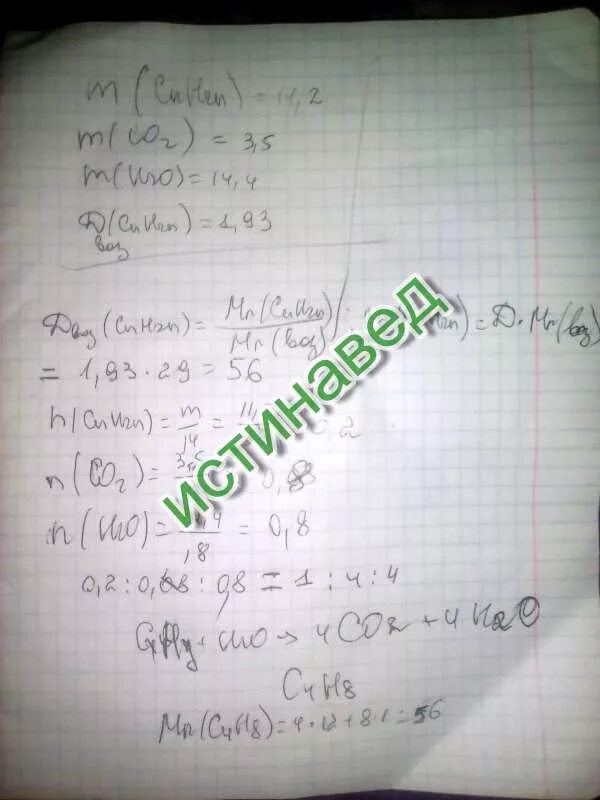 m (CnH2n) = 11,2
m(CO2) = 3,5
m(H2O) = 14,4
D(CnH2n) = 1,93
воз
Dвоз (CnH2n) = Mr(CnH2n) / Mr(воз) = D·Mr(воз)
= 1,93·29 = 56
n(CnH2n) = m
n(CO2) = 0,8
n(H2O) = = 0,8
,8
0,2 : 0,8 : 0,8 = 1 : 4 : 4
CxHy + → 4CO2 + 4H2O
C4H8
Mr(C4H8) = 4·12+8·1=56
истинавед